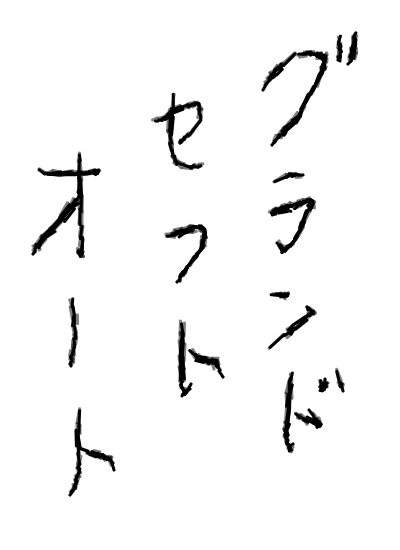 グランド
セフト
オート